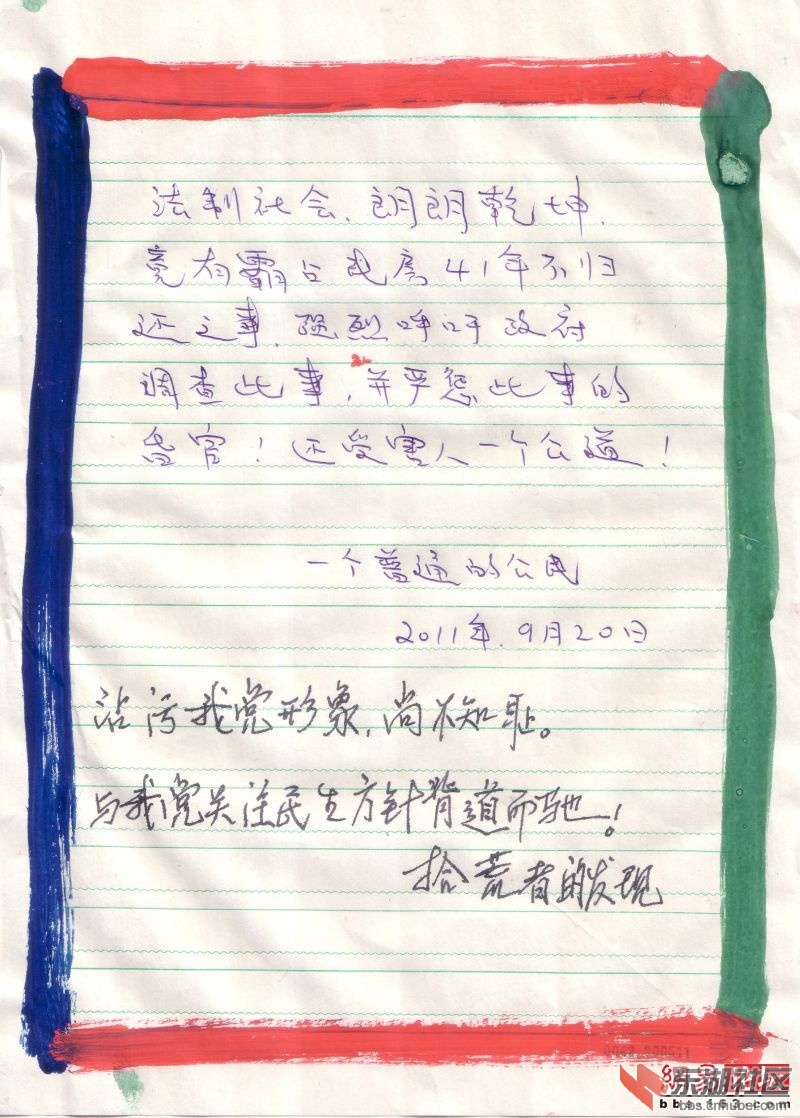 法制社会、朗朗乾坤.
竟有霸占民房41年不归
还之事,强烈呼吁政府
调查此事,并严惩此事的
昏官!还受害人一个公道!
一个普通的公民
2011年.9月20日
沾污我党形象,尚不知耻。
与我党关注民生方针背道而驰!
拾荒者的发现
东湖社区
bbs.cnhubei.com